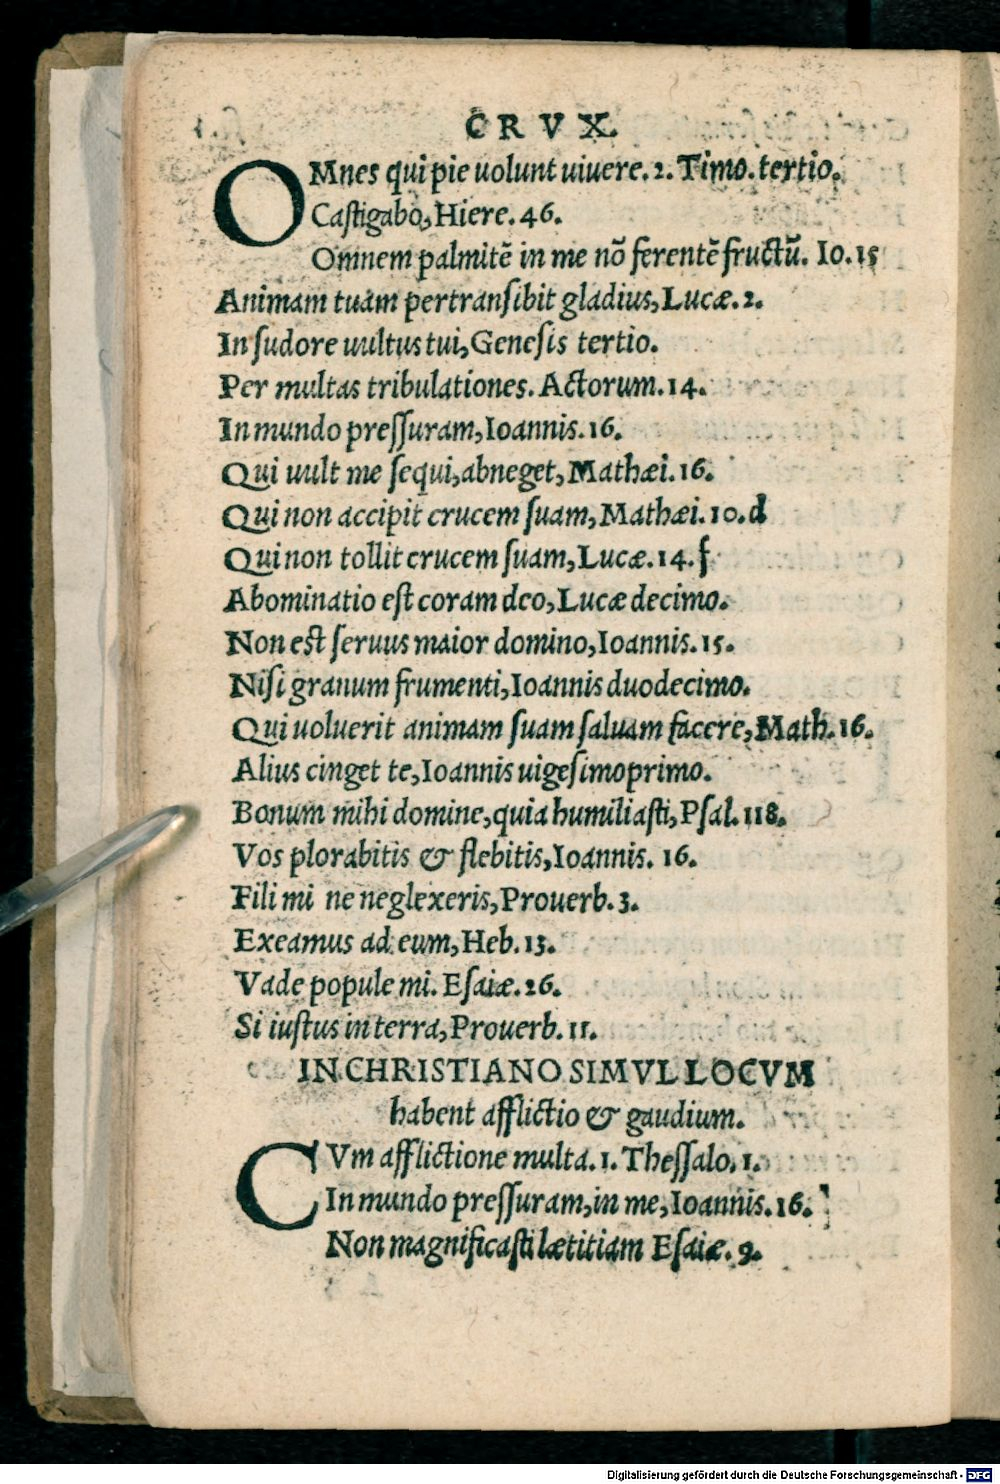 CRVX.
OMnes qui pie uolunt uiuere. 2. Timo. tertio.
Castigabo, Hiere. 46.
Omnem palmitẽ in me nõ ferentẽ fructũ. Io. 15
Animam tuam pertransibit gladius, Lucæ. 2.
In sudore uultus tui, Genesis tertio.
Per multas tribulationes. Actorum. 14.
In mundo pressuram, Ioannis. 16.
Qui uult me sequi, abneget, Mathæi. 16.
Qui non accipit crucem suam, Mathæi. 10. d
Qui non tollit crucem suam, Lucæ. 14. f
Abominatio est coram deo, Lucæ decimo.
Non est seruus maior domino, Ioannis. 15.
Nisi granum frumenti, Ioannis duodecimo.
Qui uoluerit animam suam saluam facere, Math. 16.
Alius cinget te, Ioannis uigesimoprimo.
Bonum mihi domine, quia humiliasti, Psal. 118.
Vos plorabitis & flebitis, Ioannis. 16.
Fili mi ne neglexeris, Prouerb. 3.
Exeamus ad eum, Heb. 13.
Vade popule mi. Esaiæ. 26.
Si iustus in terra, Prouerb. 11.
IN CHRISTIANO SIMVL LOCVM
habent afflictio & gaudium.
CVm afflictione multa. 1. Thessalo. 1.
In mundo pressuram, in me, Ioannis. 16.
Non magnificasti lætitiam Esaiæ. 9.
Digitalisierung gefördert durch die Deutsche Forschungsgemeinschaft - DFG